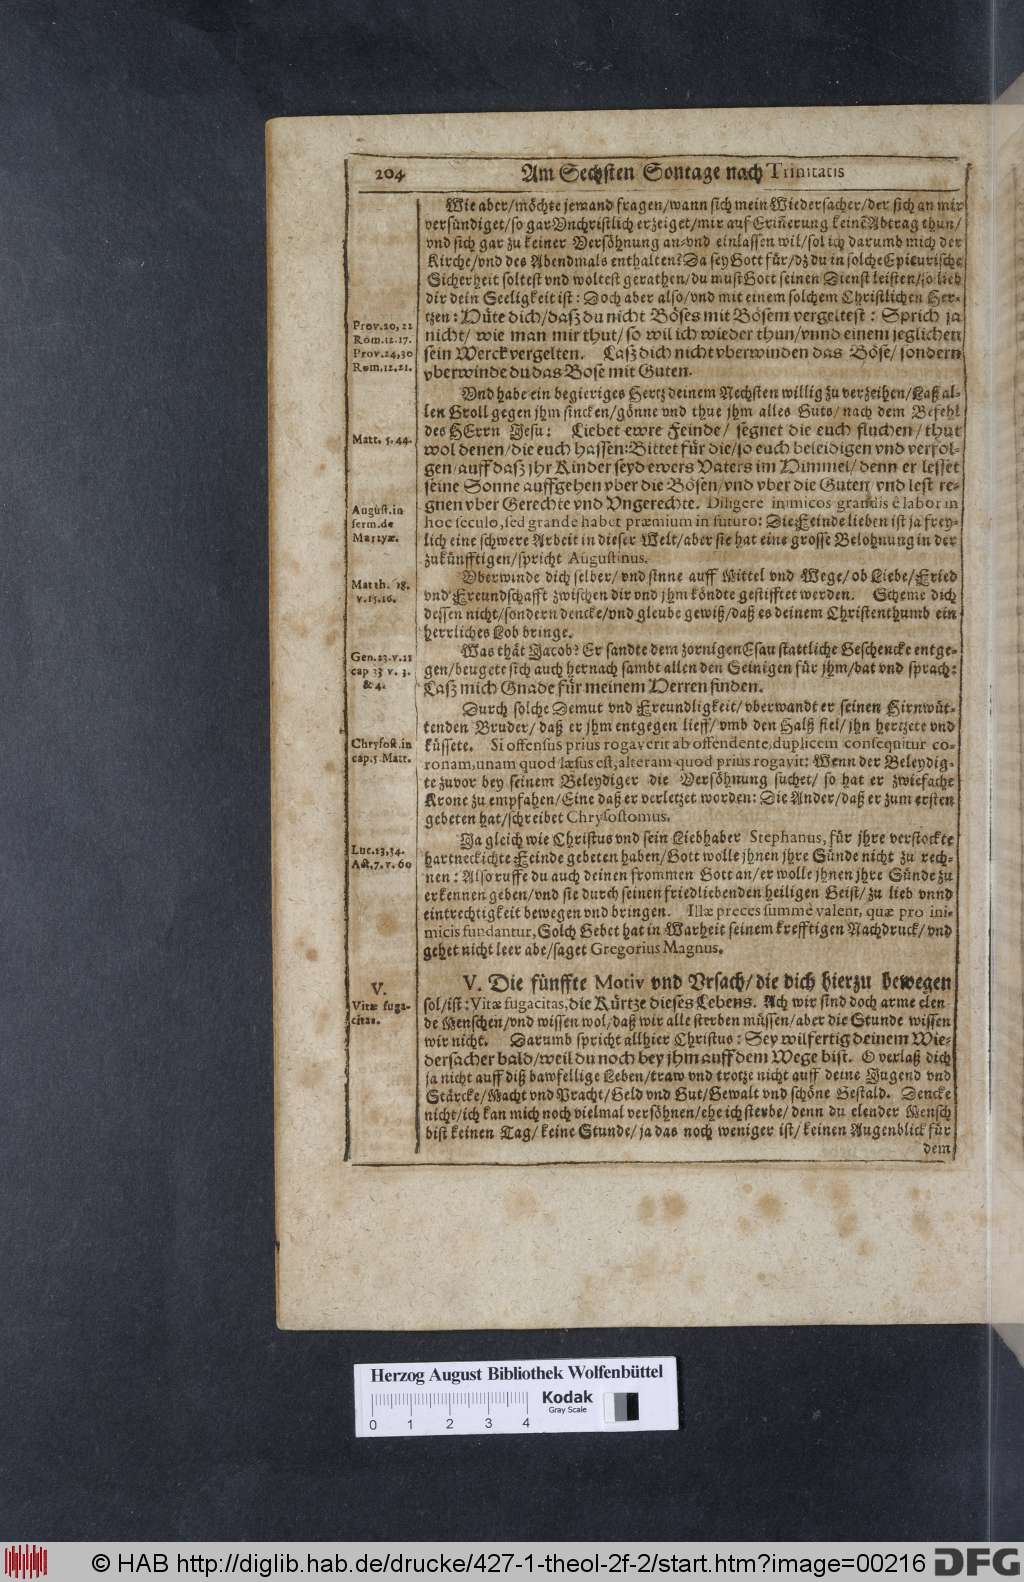 204
Am Sechsten Sontage nach Trinitatis
Wie aber/möchte jemand fragen/wann sich mein Wiedersacher/der sich an mir
versündiget/so gar Vnchristlich erzeiget/mir auf Erin̄erung keinē Abtrag thun/
vnd sich gar zu keiner Versöhnung an-vnd einlassen wil/sol ich darumb mich der
Kirche/vnd des Abendmals enthalten? Da sey Gott für/dz du in solche Epicurische
Sicherheit soltest vnd woltest gerathen/du must Gott seinen Dienst leisten/so lieb
dir dein Seeligkeit ist: Doch aber also/vnd mit einem solchem Christlichen Her-
tzen: Hüte dich/dasz du nicht Böses mit Bösem vergeltest: Sprich ja
nicht/ wie man mir thut/so wil ich wieder thun/vnnd einem jeglichen
sein Werck vergelten. Lasz dich nicht vberwinden das Böse/sondern
vberwinde du das Böse mit Guten.
Prov.20,22
Rom.12.17.
Prov.24,30
Rom,12.21.
Vnd habe ein begieriges Hertz deinem Nechsten willig zu verzeihen/Laß al-
len Groll gegen jhm sincken/gönne vnd thue jhm alles Guts/nach dem Befehl
des HErrn Jesu: Liebet ewre Feinde/ segnet die euch fluchen/ thut
wol denen/die euch hassen: Bittet für die/so euch beleidigen vnd verfol-
gen/auff dasz jhr Kinder seyd ewers Vaters im Himmel/denn er lesset
seine Sonne auffgehen vber die Bösen/vnd vber die Guten vnd lest re-
gnen vber Gerechte vnd Vngerechte. Diligere inimicos grandis ē labor in
hoc seculo, sed grande habet præmium in futuro: Die Feinde lieben ist ja frey-
lich eine schwere Arbeit in dieser Welt/aber sie hat eine grosse Belohnung in der
zukünfftigen/spricht Augustinus.
Matt. 5.44.
August.in
serm.de
Martyæ.
Vberwinde dich selber/vnd sinne auff Mittel vnd Wege/ob Liebe/Fried
vnd Freundschafft zwischen dir vnd jhm köndte gestifftet werden. Scheme dich
dessen nicht/sondern dencke/vnd gleube gewiß/daß es deinem Christenthumb ein
herrliches Lob bringe.
Matth. 18.
v.15.16.
Was thät Jacob? Er sandte dem zornigen Esau stattliche Geschencke entge-
gen/beugete sich auch hernach sambt allen den Seinigen für jhm/bat vnd sprach:
Lasz mich Gnade für meinem Herren finden.
Gen.23.v.11
cap 33 v. 3.
& 4.
Durch solche Demut vnd Freundligkeit/vberwandt er seinen Hirnwüt-
tenden Bruder/ daß er jhm entgegen lieff/vmb den Halß fiel/jhn hertzete vnd
küssete. Si offensus prius rogaverit ab offendente, duplicem consequitur co-
ronam, unam quod læsus est, alteram quod prius rogavit: Wenn der Beleydig-
te zuvor bey seinem Beleydiger die Versöhnung suchet/ so hat er zwiefache
Krone zu empfahen/Eine daß er verletzet worden: Die Ander/daß er zum ersten
gebeten hat/schreibet Chrysostomus.
Chrysost.in
cap.5 Matt.
Ja gleich wie Christus vnd sein Liebhaber Stephanus, für jhre verstockte
hartneckichte Feinde gebeten haben/Gott wolle jhnen jhre Sünde nicht zu rech-
nen: Also ruffe du auch deinen frommen Gott an/er wolle jhnen jhre Sünde zu
erkennen geben/vnd sie durch seinen friedliebenden heiligen Geist/zu lieb vnnd
eintrechtigkeit bewegen vnd bringen. Illæ preces summe valent, quæ pro ini-
micis fundantur, Solch Gebet hat in Warheit seinem krefftigen Nachdruck/vnd
gehet nicht leer abe/saget Gregorius Magnus.
Luc.23,34.
Act.7.v.60
V. Die fünffte Motiv vnd Vrsach/die dich hierzu bewegen
sol/ist: Vitæ fugacitas, die Kürtze dieses Lebens. Ach wir sind doch arme elen-
de Menschen/vnd wissen wol/daß wir alle sterben müssen/aber die Stunde wissen
wir nicht. Darumb spricht allhier Christus: Sey wilfertig deinem Wie-
dersacher bald/weil du noch bey jhm auff dem Wege bist. O verlaß dich
ja nicht auff diß bawfellige Leben/traw vnd trotze nicht auff deine Jugend vnd
Stärcke/Macht vnd Pracht/Geld vnd Gut/Gewalt vnd schöne Gestald. Dencke
nicht/ich kan mich noch vielmal versöhnen/ehe ich sterbe/ denn du elender Mensch
bist keinen Tag/keine Stunde/ja das noch weniger ist/ keinen Augenblick für
dem
V.
Vitæ fuga-
citas.
Herzog August Bibliothek Wolfenbüttel
0 1 2 3 4
Kodak
Gray Scale
© HAB http://diglib.hab.de/drucke/427-1-theol-2f-2/start.htm?image=00216
DFG